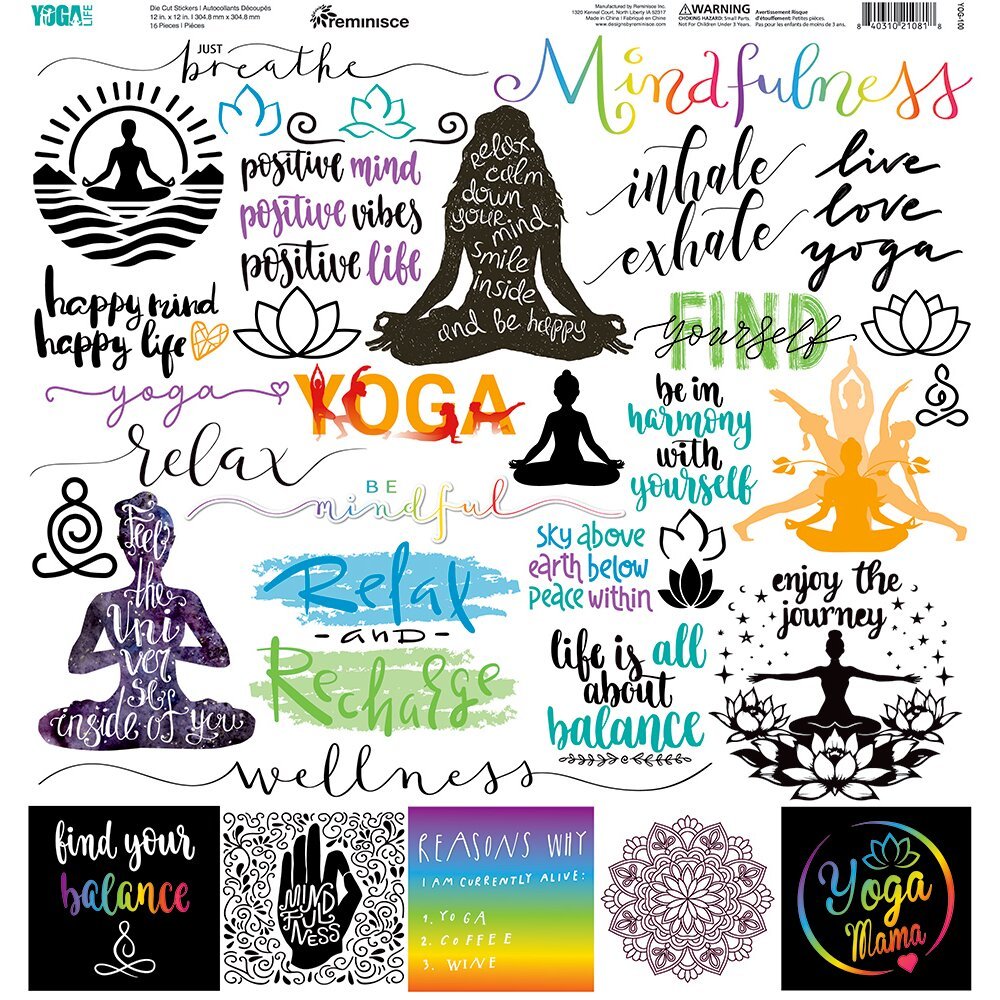 YOGA LIFE
Die Cut Stickers | Autocollants Découpés
12 in. x 12 in. | 304.8 mm x 304.8 mm
16 Pieces | Pièces
reminisce
Manufactured by Reminisce Inc.
1320 Kennel Court, North Liberty IA 52317
Made in China | Fabriqué en China
www.designsbyreminisce.com
WARNING
CHOKING HAZARD: Small Parts.
Not For Children Under 3 Years.
Avertissement Risque
d'étouffement: Petites pièces.
Pas pour les enfants de moins de 3 ans.
8 40310 21081 8
YOG-100
JUST
breathe
Mindfulness
positive mind
positive vibes
positive life
relax,
calm
down
your
mind,
smile
inside
and be happy
inhale
exhale
live
love
yoga
happy mind
happy life
FIND
yourself
yoga
YOGA
be in
harmony
with
yourself
relax
BE
mindful
Feel
the
Uni
ver
ses
inside of you
Relax
-AND-
Recharge
sky above
earth below
peace within
enjoy the
journey
life is all
about
balance
wellness
find your
balance
MIND
FUL
NESS
REASONS WHY
I AM CURRENTLY ALIVE:
1. YOGA
2. COFFEE
3. WINE
Yoga
Mama